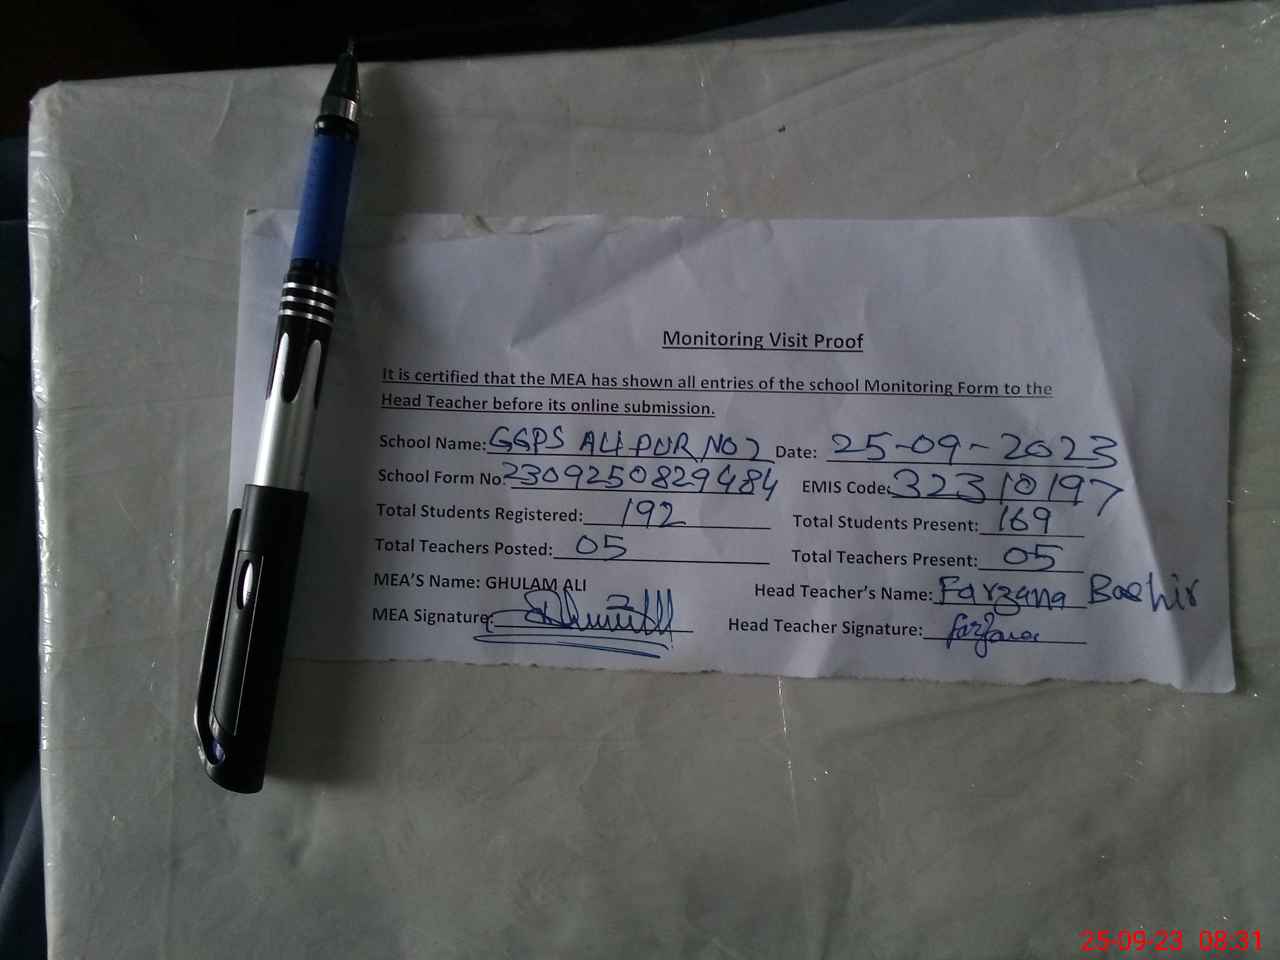 Monitoring Visit Proof
It is certified that the MEA has shown all entries of the school Monitoring Form to the
Head Teacher before its online submission.
School Name: GGPS ALI PUR NO 2 Date: 25-09-2023
School Form No: 2309250829484 EMIS Code: 32310197
Total Students Registered: 192 Total Students Present: 169
Total Teachers Posted: 05 Total Teachers Present: 05
MEA'S Name: GHULAM ALI Head Teacher's Name: Farzana Bashir
MEA Signature: Head Teacher Signature: farzana
25-09-23 08:31